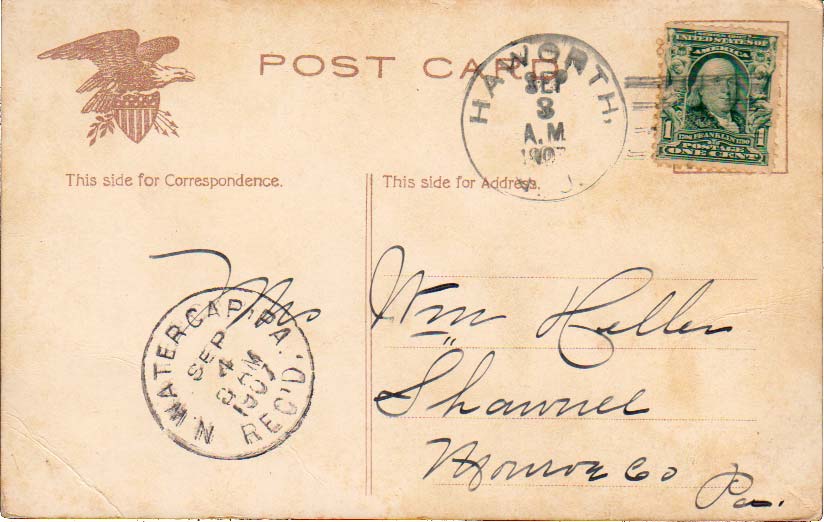 POST CARD
HAWORTH,
SEP
3
A.M
1907
N.J.
SERIES 1902
UNITED STATES OF
AMERICA
1 1706 FRANKLIN 1790 1
POSTAGE
ONE CENT
This side for Correspondence.
This side for Address.
Mrs Wm Heller
Shawnee
Monroe Co
Pa.
N. WATER GAP, PA.
SEP
4
8 AM
1907
REC'D.